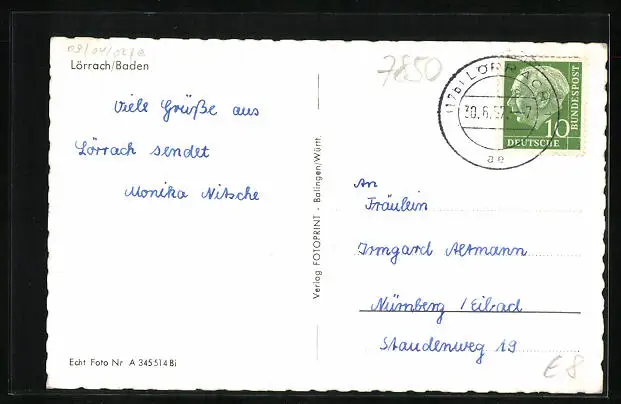 Lörrach/Baden
Viele Grüße aus
Lörrach sendet
Monika Nitsche
Echt Foto Nr A 345514 Bi
Verlag FOTOPRINT - Balingen/Württ.
7850
(17b) LÖRRACH
30.6.57
ae
10
DEUTSCHE
BUNDESPOST
An
Fräulein
Irmgard Altmann
Nürnberg / Eibad
Staudenweg 19
E8